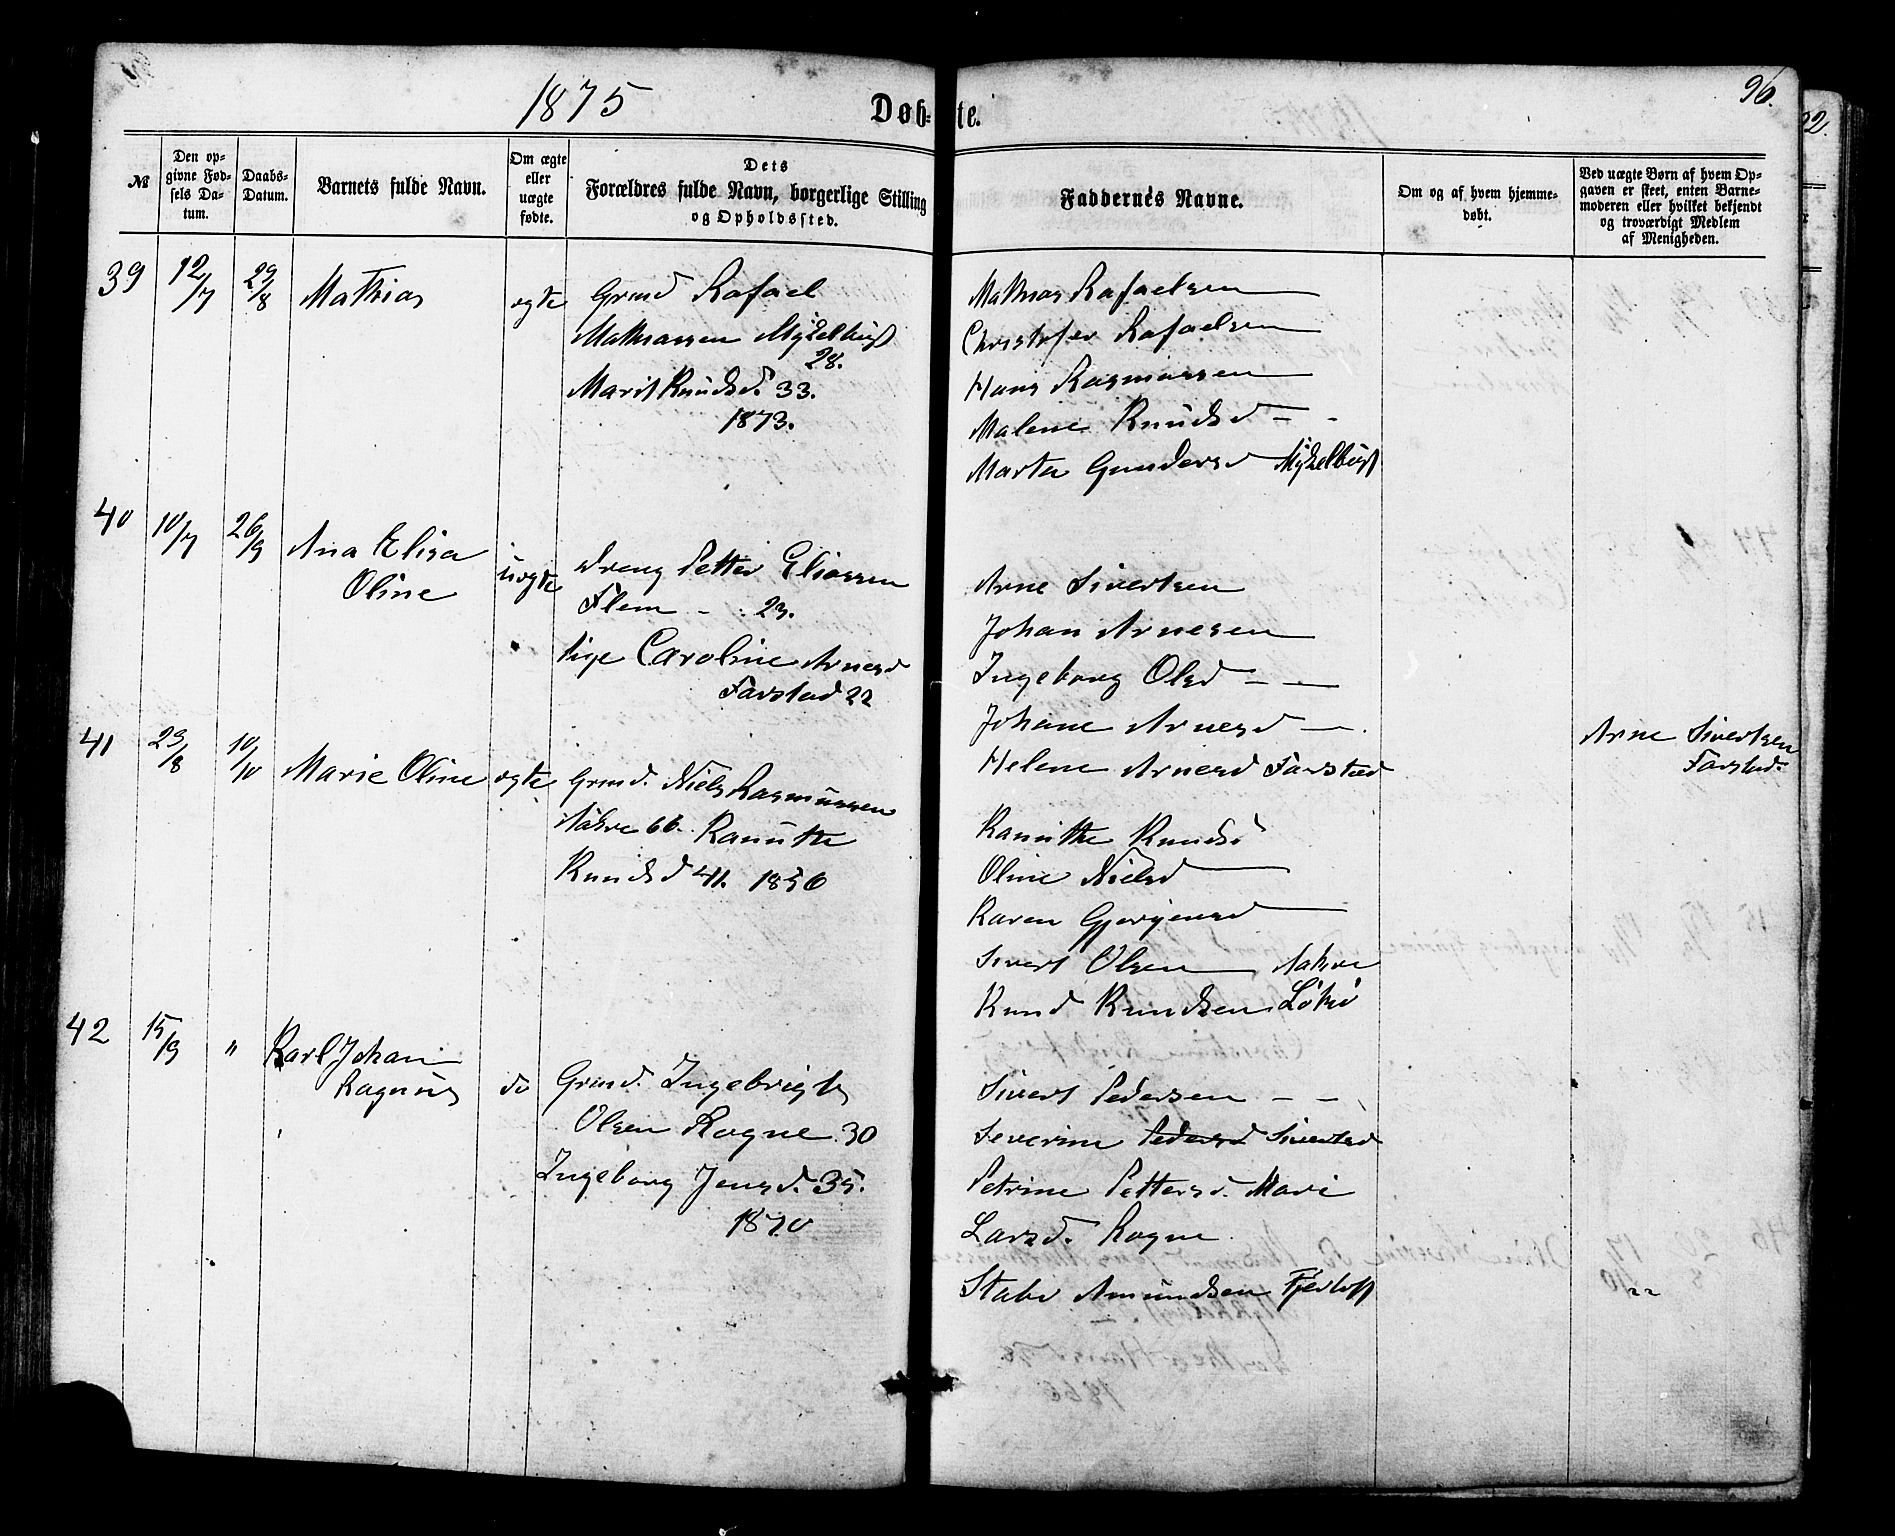 1875
Døb=
te.
96.
№
Den op=
givne Fød=
sels Da=
tum.
Daabs=
Datum.
Barnets fulde Navn.
Om ægte
eller
uægte
fødte.
Dets
Forældres fulde Navn, borgerlige Stilling
og Opholdssted.
Faddernes Navne.
Om og af hvem hjemme=
døbt.
Ved uægte Børn af hvem Op=
gaven er skeet, enten Barne=
moderen eller hvilket bekjendt
og troværdigt Medlem
af Menigheden.
39 12/7 29/8 Mathias ægte Grmd Rafael
Mathiassen Myklebust
28.
Marit Knudsd. 33.
1873.
Mathias Rafaelsen
Christofer Rafaelsen
Hans Rasmussen
Malene Knudsd - -
Marta Gundersd Myklebust
40 10/7 26/9 Ana Elisa
Oline
uægte
Dreng Petter Eliassen
Flem - 23.
Pige Caroline Arnesd
Farstad 22
Arne Sivertsen
Johan Arnesen
Ingeborg Olsd - -
Johane Arnesd -
Helene Arnesd Farstad
Arne Sivertsen
Farstad.
41 29/8 10/10 Marie Oline ægte Grmd. Niels Rasmussen
66. Kanutte
Knudsd 41. 1856
Kanutte Knudsd
Oline Nielsd
Karen Gjørgensd
Sivert Olsen
Knud Knudsen
42 15/9 " Karl Johan
Ragnus
do Grmd. Ingebrigt
Olsen Rogne 30
Ingeborg Jensd. 35.
1870
Sivert Pedersen - -
Severine Pedersd Sivertsd
Petrine Pettersd. Mari
Larsd. Rogne
Amundsen Fjertoft